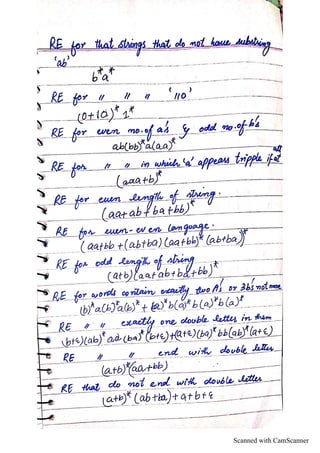 RE for that strings that do not have substring
'ab'
b*a*
RE for " " " '110'
(0+10)* 1*
RE for even no. of a's & odd no. of b's
ab(bb)*a(aa)*
RE for " " in which 'a' appears tripple if at all
(aaa+b)*
RE for even length of string.
(aa+ab+ba+bb)*
RE for even-even language.
(aa+bb+(ab+ba)(aa+bb)*(ab+ba))*
RE for odd length of string
(a+b)(aa+ab+ba+bb)*
RE for words contain exactly two b's or 3b's not more
(b)*a(b)*a(b)* + (a)*b(a)*b(a)*b(a)*
RE " " exactly one double letter in them
(b+ε)(ab)*aa(ba)*(b+ε)+(a+ε)(ba)*bb(ab)*(a+ε)
RE " " end with double letter
(a+b)*(aa+bb)
RE that do not end with double letter
(a+b)*(ab+ba)+a+b+ε
Scanned with CamScanner